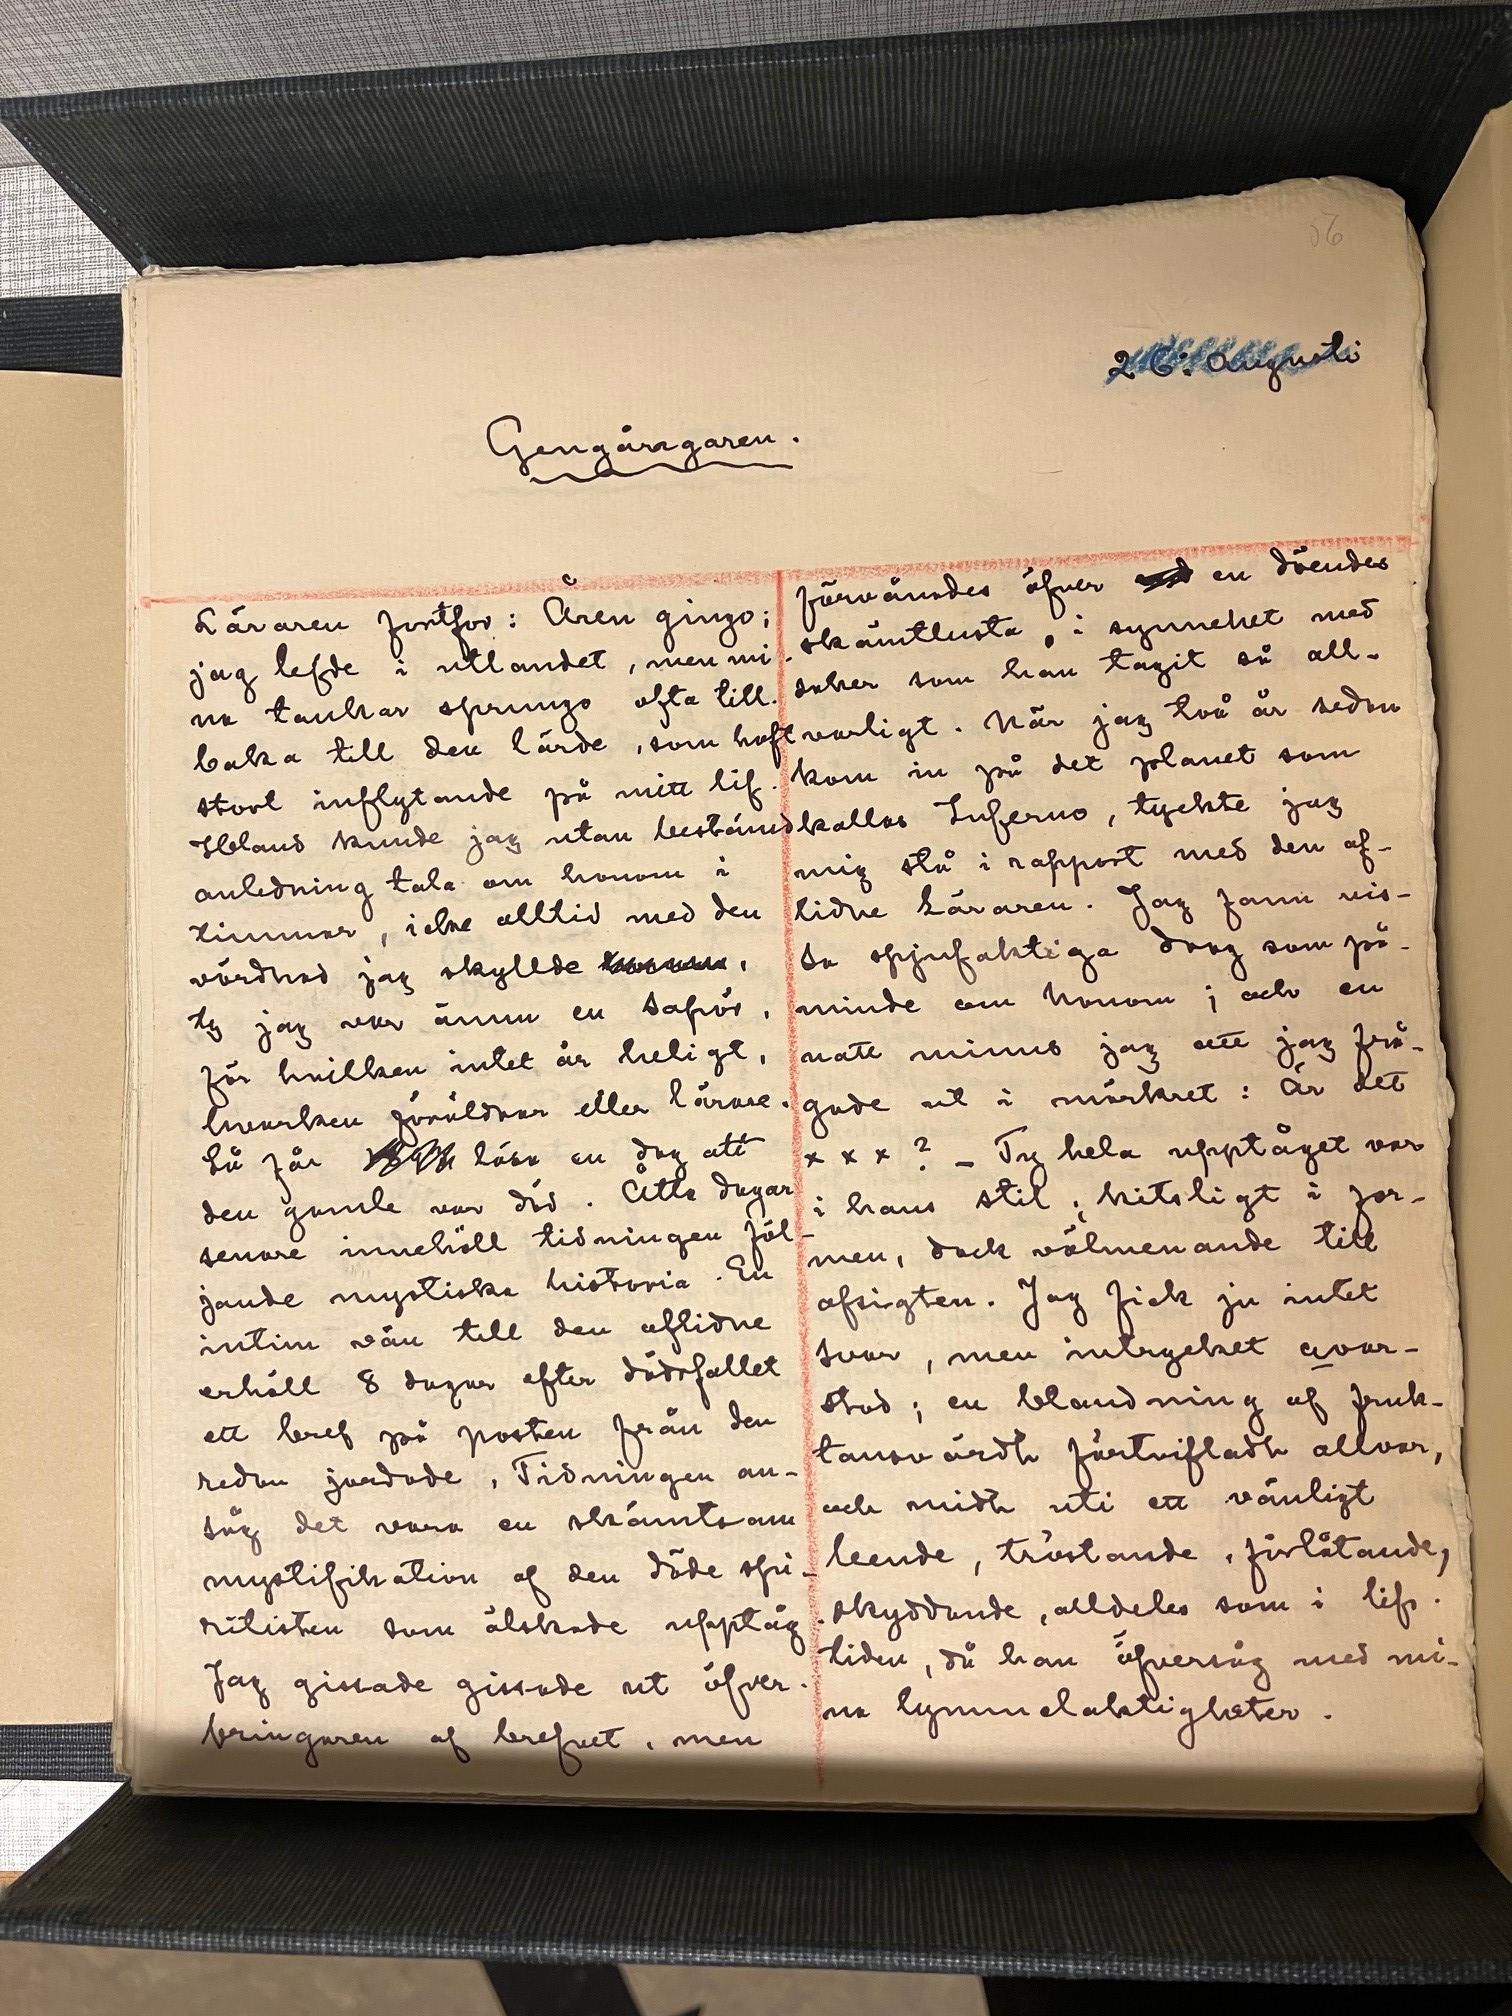 26: Augusti
Gengångaren.
Läraren fortfor: Åren gingo;
jag lefde i utlandet, men mi-
na tankar sprungo ofta till-
baka till den lärde, som haft
stort inflytande på mitt lif.
Ibland kunde jag utan bestämd
anledning tala om honom i
timmar, icke alltid med den
vördnad jag skyllde
ty jag var ännu en Saför,
för hvilken intet är heligt,
hvarken föräldrar eller lärare.
Så får läsa en dag att
den gamle var död. Åtta dagar
senare innehöll tidningen föl-
jande mystiska historia. En
intim vän till den aflidne
erhöll 8 dagar efter dödsfallet
ett bref på posten från den
redan jordade. Tidningen an-
såg det vara en skämtsam
mystifikation af den döde spi-
ritisten som älskade upptåg.
Jag gissade gissade ut öfver-
bringaren af brefvet, men
förvånades öfver en döendes
skämtlusta, i synnehet med
saker som han tagit så all-
varligt. När jag två år sedan
kom in på det planet som
kallas Inferno, tyckte jag
mig stå i rapport med den af-
lidne Läraren. Jag fann vis-
sa spjufaktiga drag som på-
minde om honom; och en
natt minns jag att jag frå-
gade ut i mörkret: Är det
x x x ? – Ty hela upptåget var
i hans stil, kitsligt i for-
men, dock välmenande till
afsigten. Jag fick ju intet
svar, men intrycket qvar-
stod; en blandning af fruk-
tansvärdt förtvifladt allvar,
och midt uti ett vänligt
leende, tröstande, förlåtande,
skyddande, alldeles som i lifs-
tiden, då han öfversåg med mi-
na lymmelaktigheter.